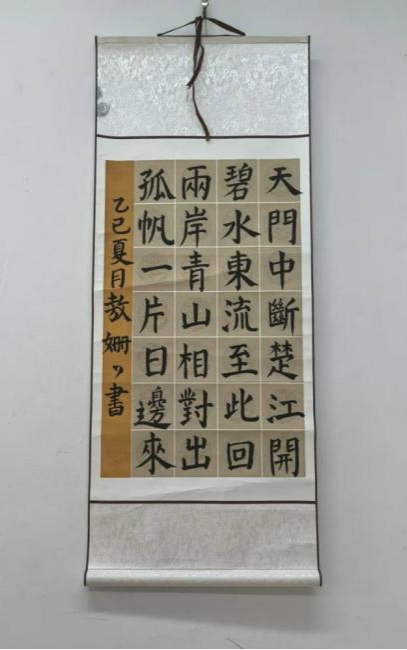 天門中斷楚江開
碧水東流至此回
兩岸青山相對出
孤帆一片日邊來
乙巳夏月敖姍〻書